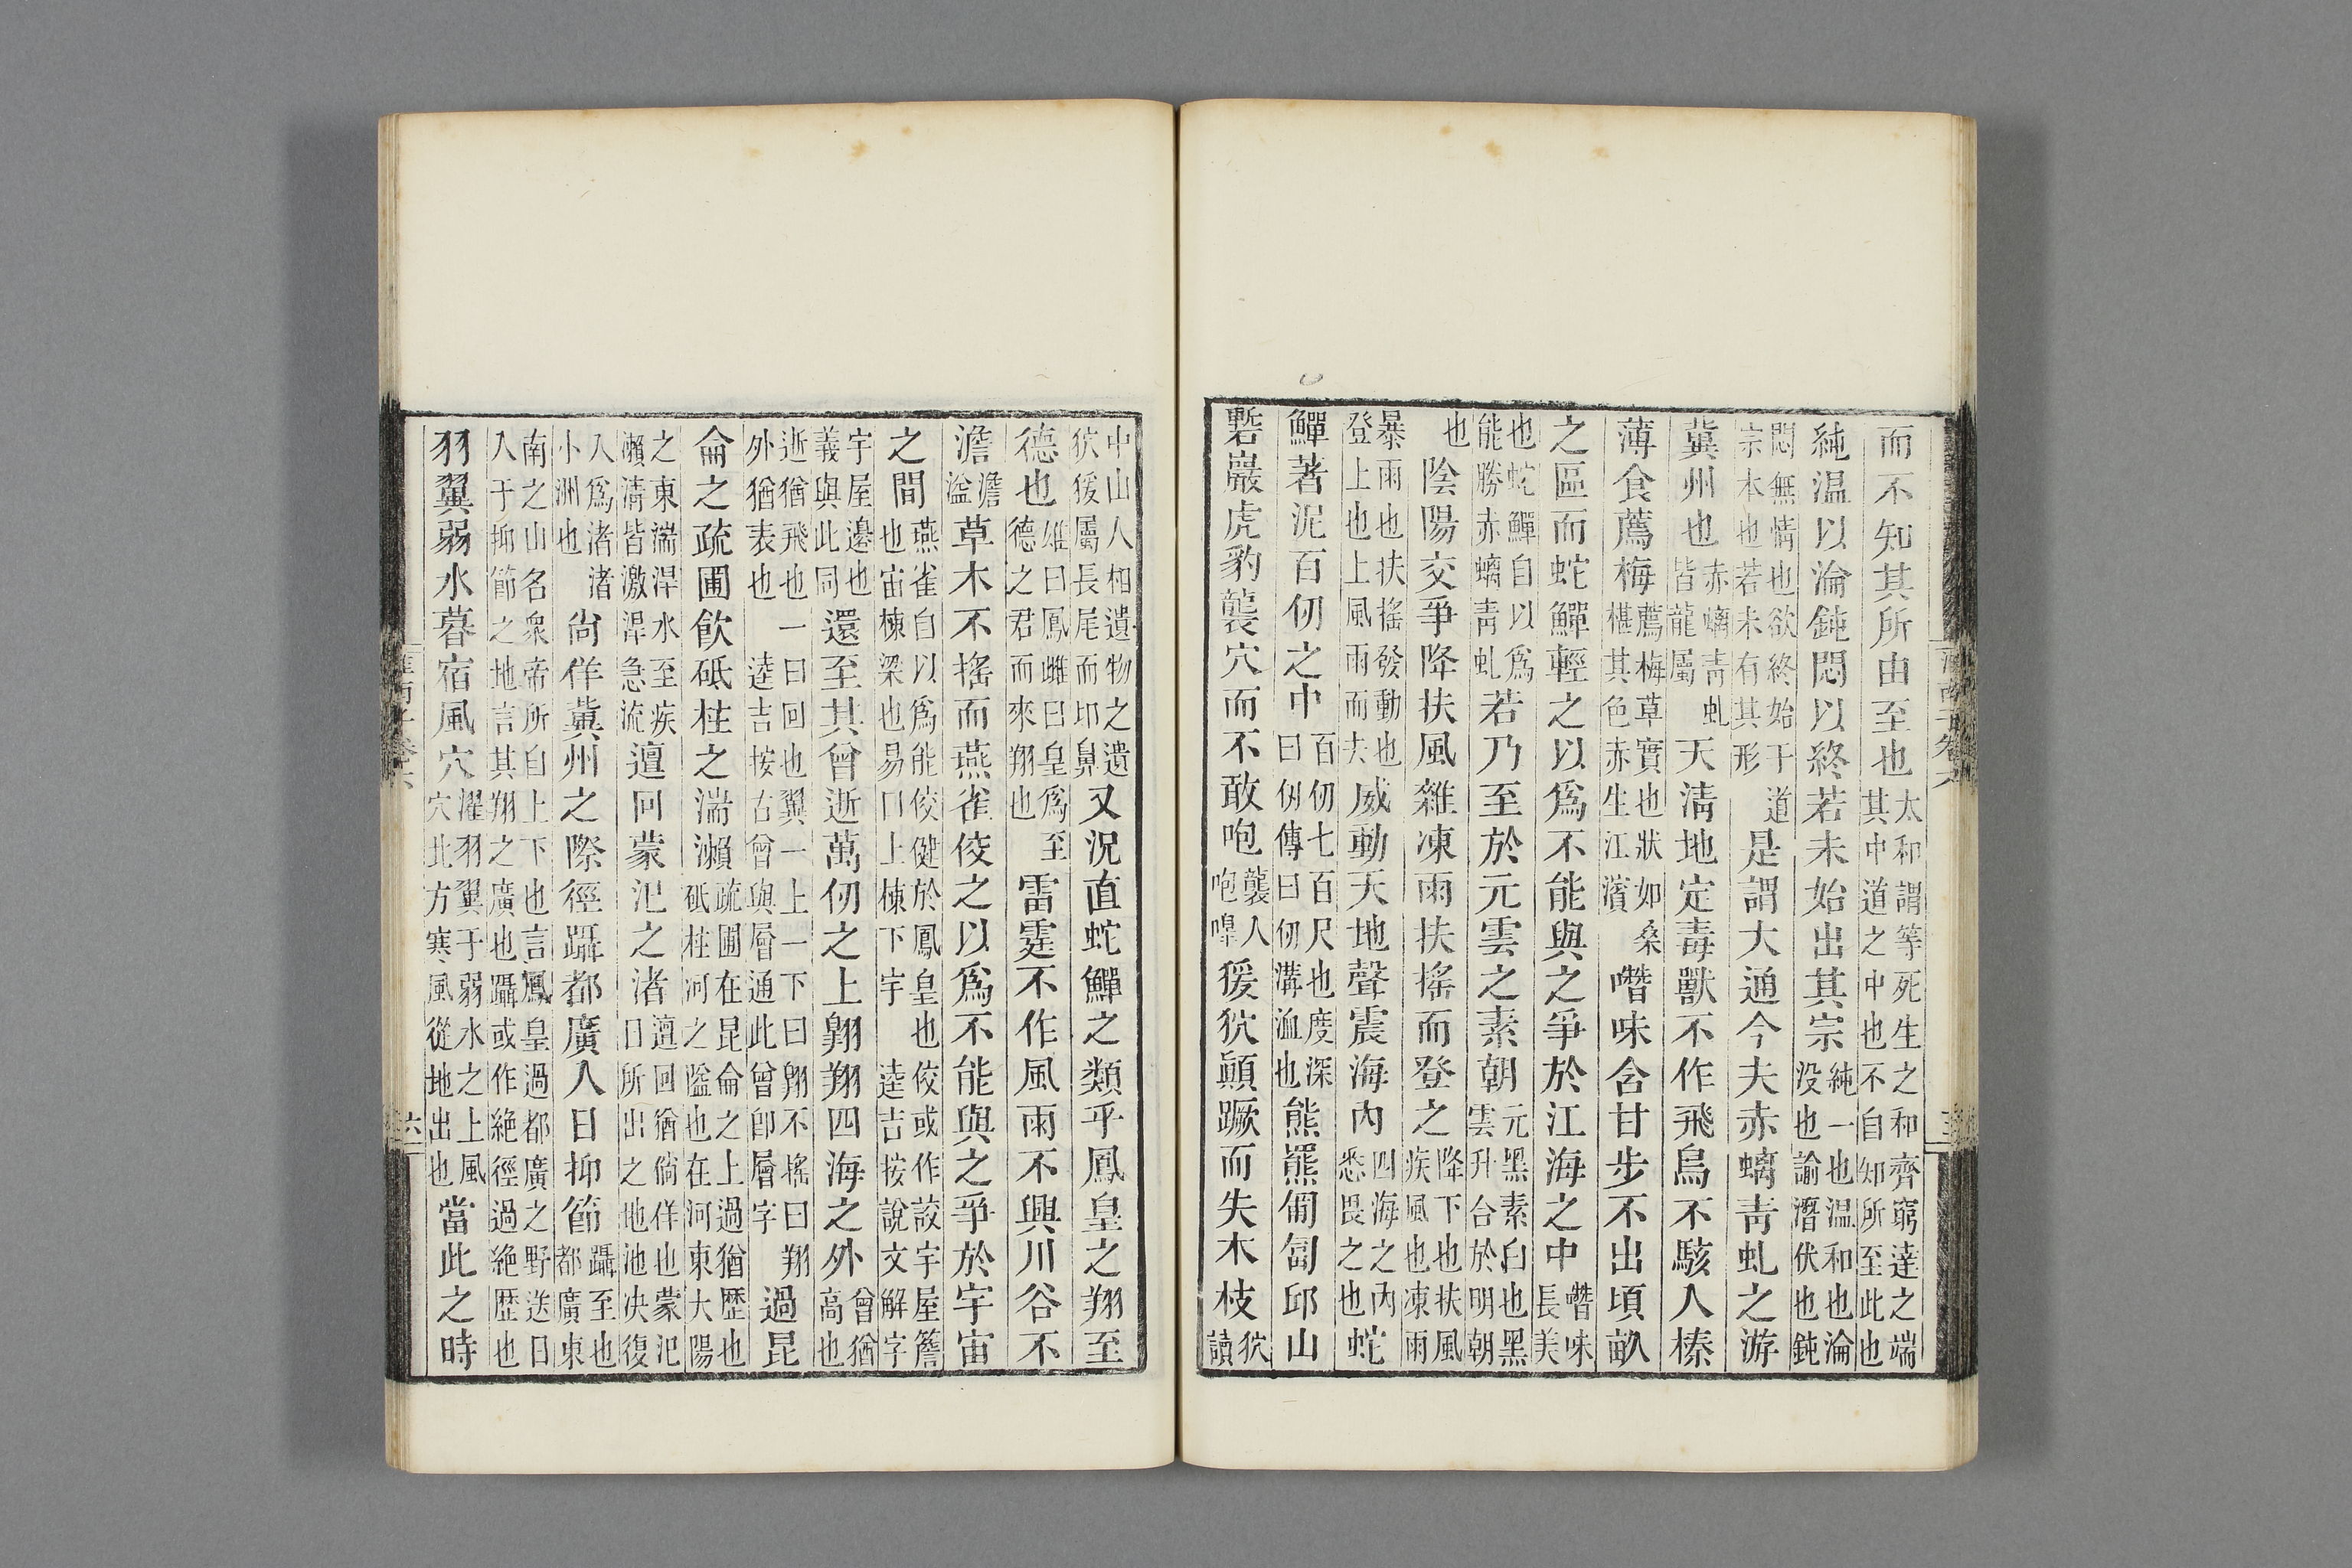 而不知其所由至也太和謂等死生之和齊窮達之端其中道之中也不自知所至此也
純温以淪鈍悶以終若未始出其宗純一也温和也淪没也諭潛伏也鈍
悶無情也欲終始于道宗本也若未有其形是謂大通今夫赤螭青虬之游
冀州也赤螭青虬皆龍屬天清地定毒獸不作飛鳥不駭入榛
薄食薦梅薦梅草實也狀如桑椹其色赤生江濱噆味含甘步不出頃畝
之區而蛇鱓輕之以爲不能與之爭於江海之中噆味長美
也蛇鱓自以爲能勝赤螭青虬若乃至於元雲之素朝元黑素白也黑雲升合於明朝
也陰陽交爭降扶風雜凍雨扶搖而登之降下也扶風疾風也凍雨
暴雨也扶搖發動也登上也上風雨而去威動天地聲震海内四海之内悉畏之也蛇
鱓著泥百仞之中百仞七百尺也度深曰仞傳曰仞溝洫也熊羆匍匐邱山
磛巖虎豹襲穴而不敢咆襲人咆嘷猨狖顚蹶而失木枝狖讀
中山人相遺物之遺狖猨屬長尾而卬鼻又況直蛇鱓之類乎鳳皇之翔至
德也雄曰鳳雌曰皇爲至德之君而來翔也雷霆不作風雨不興川谷不
澹澹溢草木不搖而燕雀佼之以爲不能與之爭於宇宙
之間燕雀自以爲能佼健於鳳皇也也宙棟梁也易曰上棟下宇佼或作詨宇屋簷逵吉按說文解字
宇屋邊也義與此同還至其曾逝萬仞之上翺翔四海之外曾猶高也
逝猶飛也外猶表也一曰回也翼一上一下曰翺不搖曰翔逵吉按古曾與層通此曾卽層字過昆
侖之疏圃飮砥柱之湍瀨疏圃在昆侖之上過猶歷也砥柱河之隘也在河東大陽
之東湍湼水至疾瀨清皆激湼急流邅回蒙汜之渚邅回猶倘佯也蒙汜日所出之地池決復
入爲渚渚小洲也尙佯冀州之際徑躡都廣入日抑節躡至也都廣東
南之山名衆帝所自上下也言鳳皇過都廣之野送日入于抑節之地言其翔之廣也躡或作絕徑過絕歷也
羽翼弱水暮宿風穴濯羽翼于弱水之上風穴北方寒風從地出也當此之時
淮南子卷六
六